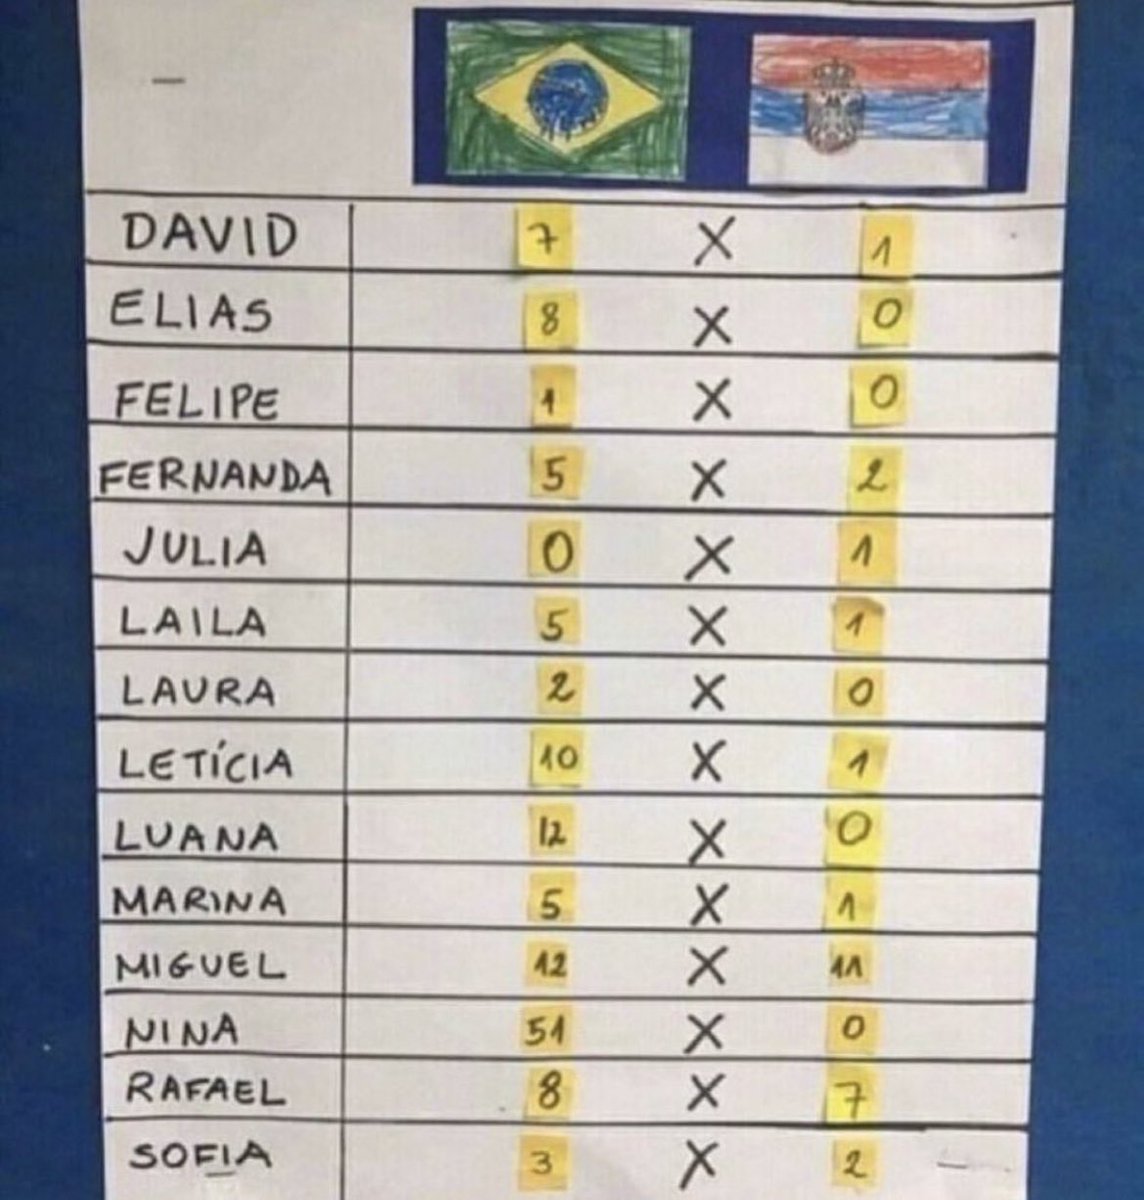 DAVID 7 X 1
ELIAS 8 X 0
FELIPE 1 X 0
FERNANDA 5 X 2
JULIA 0 X 1
LAILA 5 X 1
LAURA 2 X 0
LETÍCIA 10 X 1
LUANA 12 X 0
MARINA 5 X 1
MIGUEL 12 X 11
NINA 51 X 0
RAFAEL 8 X 7
SOFIA 3 X 2